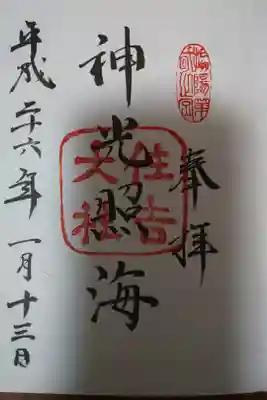 奉拝
神光照海
住吉
大社
平成二十六年一月十三日